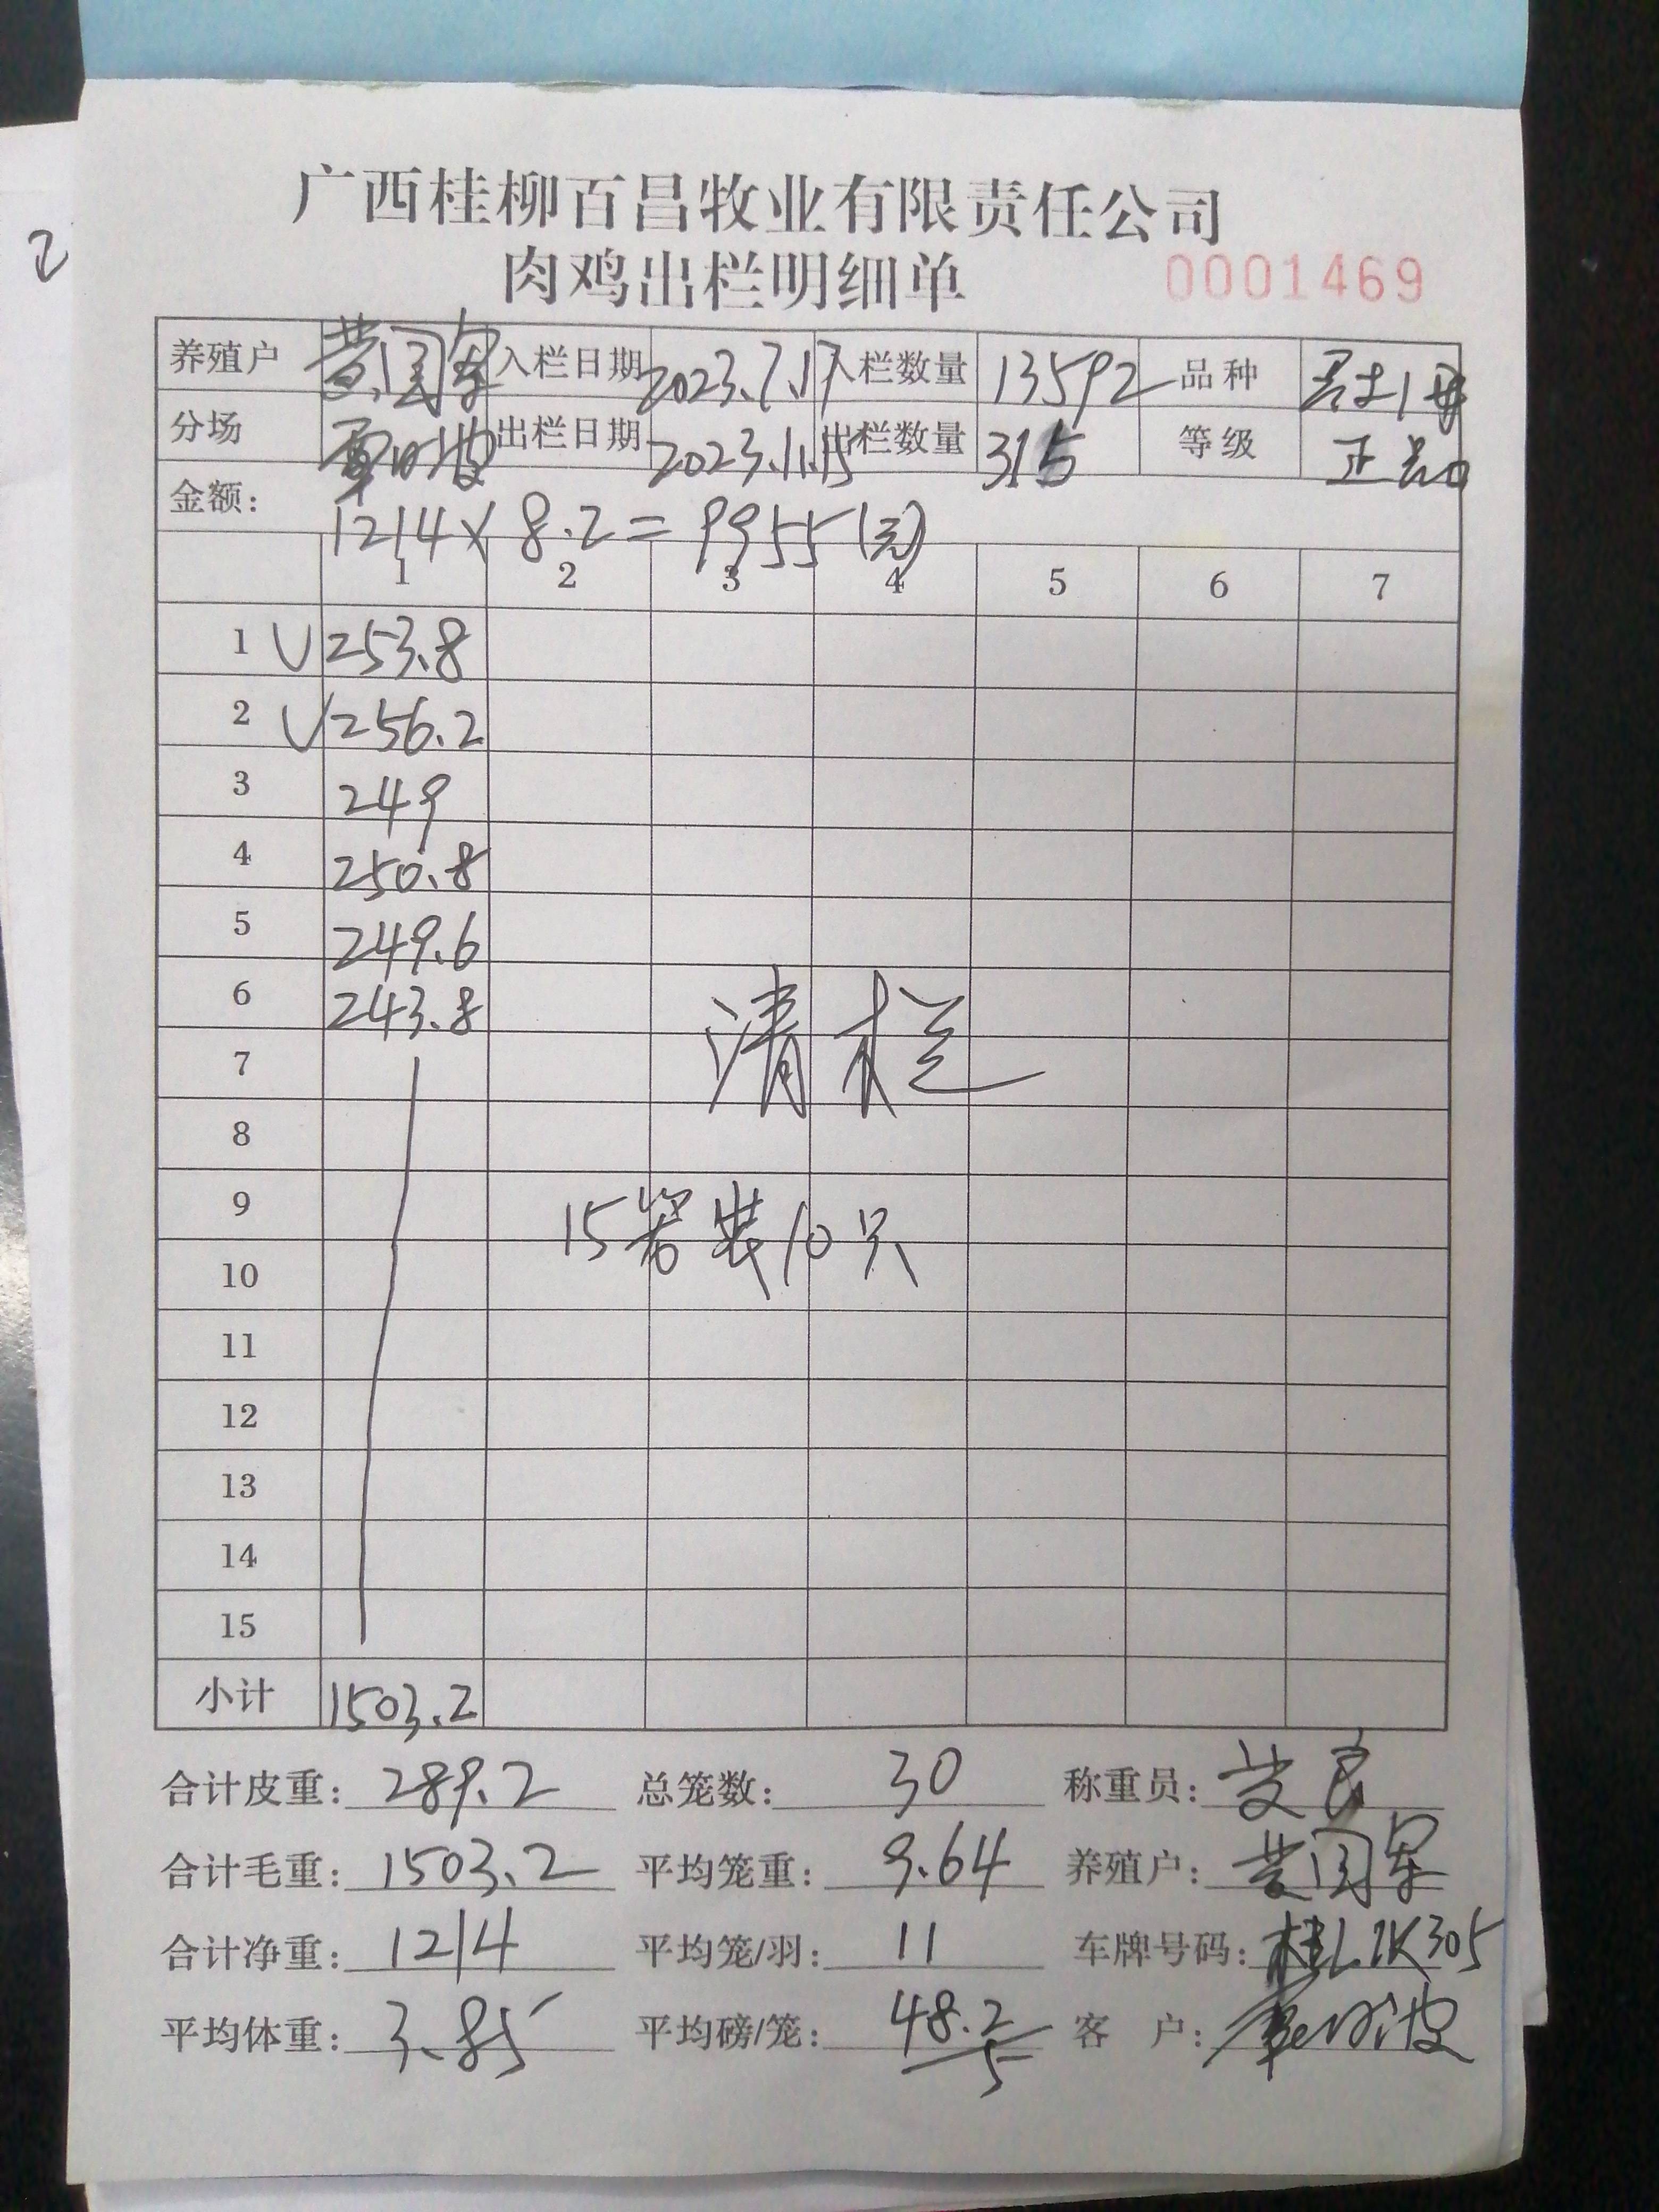 2
广西桂柳百昌牧业有限责任公司
肉鸡出栏明细单 0001469
养殖户 黄国军 入栏日期 2023.7.17 入栏数量 13592 品种
分场 覃时波 出栏日期 2023.11.15 出栏数量 315 等级 正品
金额: 1214×8.2=9955(元)
1 2 3 4 5 6 7
1 253.8
2 256.2
3 249
4 250.8
5 249.6
6 243.8
清栏
7
8
9 15笼装10只
10
11
12
13
14
15
小计 1503.2
合计皮重: 289.2 总笼数: 30 称重员:
合计毛重: 1503.2 平均笼重: 9.64 养殖户: 黄国军
合计净重: 1214 平均笼/羽: 11 车牌号码:
平均体重: 3.85 平均磅/笼: 48.2/5 客 户: 覃时波